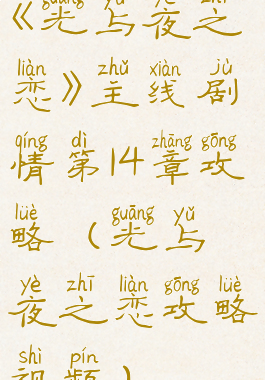 guāng yǔ yè zhī
《光与夜之
liàn zhǔ xiàn jù
恋》主线剧
qíng dì zhāng gōng
情第14章攻
lüè guāng yǔ
略（光与
yè zhī liàn gōng lüè
夜之恋攻略
shì pín
视频）